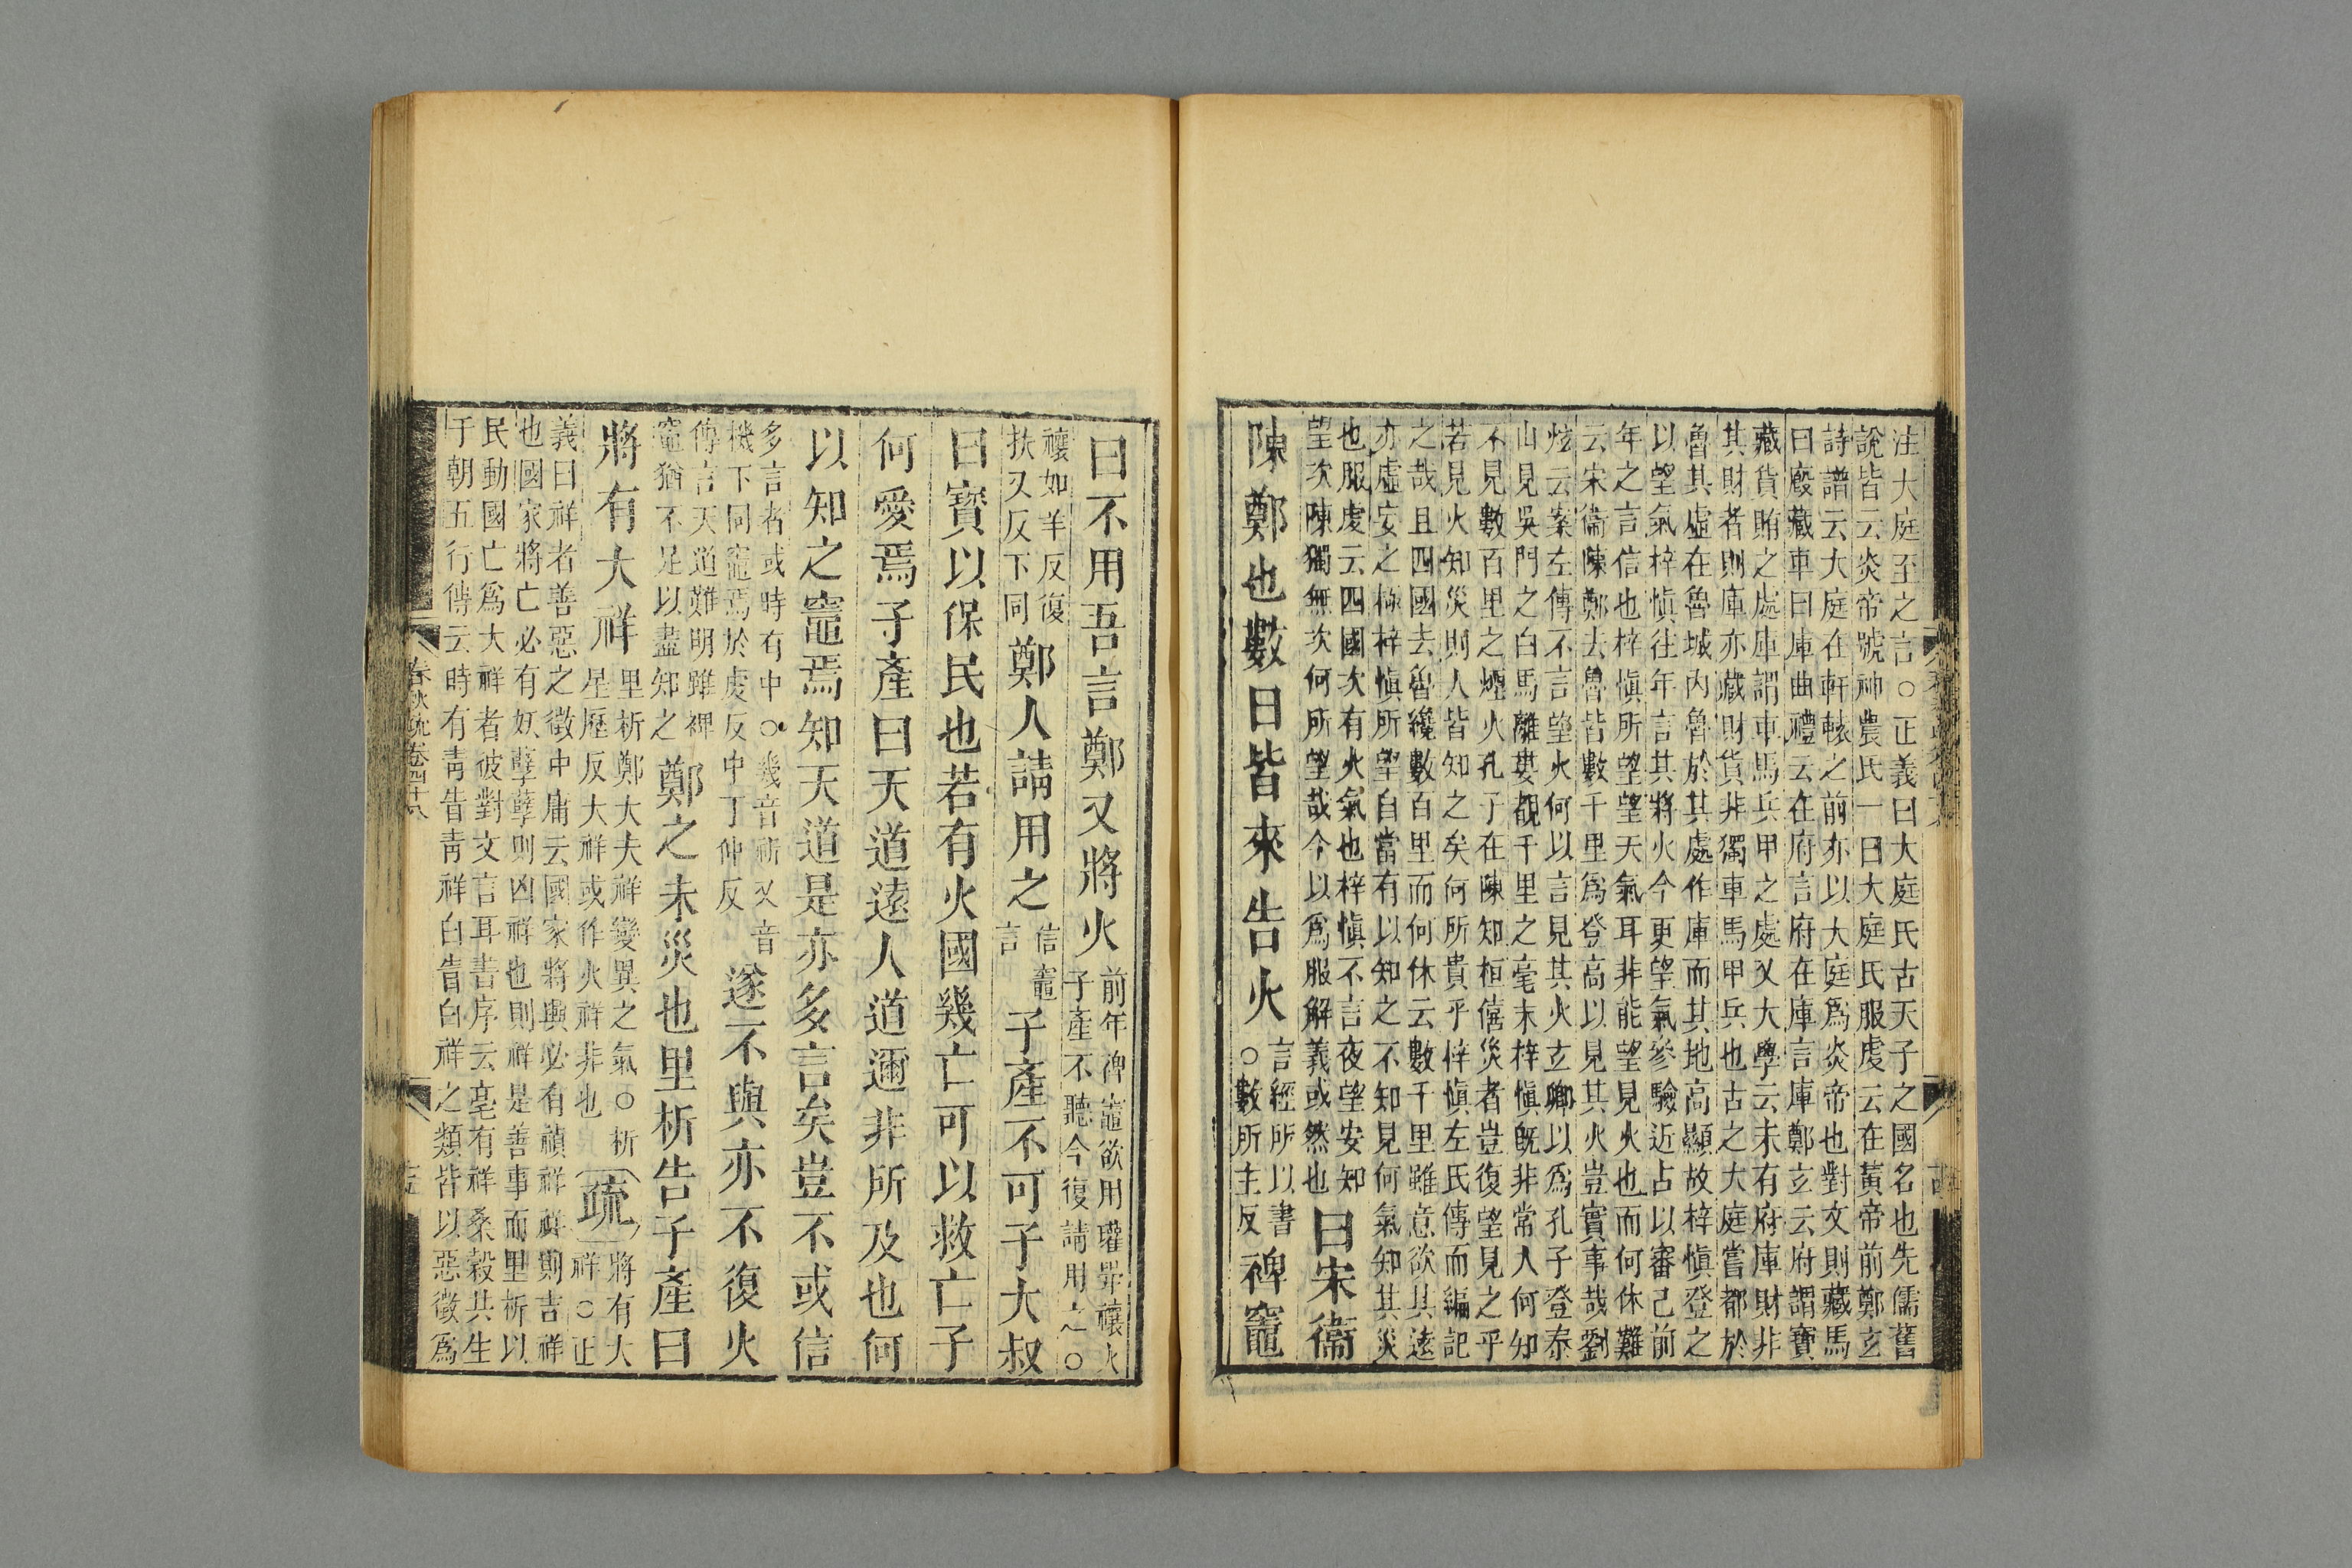 注大庭至之言○正義曰大庭氏古天子之國名也先儒舊
說皆云炎帝號神農氏一曰大庭氏服虔云在黃帝前鄭玄
詩譜云大庭在軒轅之前亦以大庭爲炎帝也對文則藏馬
曰廄藏車曰庫曲禮云在府言府在庫言庫鄭玄云府謂寶
藏貨賄之處庫謂車馬兵甲之處又大學云未有府庫財非
其財者則庫亦藏財貨非獨車馬甲兵也古之大庭嘗都於
魯其虛在魯城內魯於其處作庫而其地高顯故梓愼登之
以望氣梓愼往年言其將火今更望氣參驗近占以審己前
年之言信也梓愼所望望天氣耳非能望見火也而何休難
云宋衞陳鄭去魯皆數千里爲登高以見其火豈實事哉劉
炫云案左傳不言望火何以言見其火玄卿以爲孔子登泰
山見吳門之白馬離婁覩千里之毫末梓愼旣非常人何知
不見數百里之煙火孔子在陳知桓僖災者豈復望見之乎
若見火知災則人皆知之矣何所貴乎梓愼左氏傳而編記
之哉且四國去魯纔數百里而何休云數千里雖意欲其遠
亦虛妄之極梓愼所望自當有以知之不知見何氣知其災
也服虔云四國次有火氣也梓愼不言夜望安知
望次陳獨無次何所望哉今以爲服解義或然也
曰宋衞
陳鄭也數日皆來告火
言經所以書
○數所主反
裨竈
曰不用吾言鄭又將火
前年裨竈欲用瓘斝禳火
子產不聽今復請用之○
禳如羊反復
扶又反下同
鄭人請用之
信竈
言
子產不可子大叔
曰寶以保民也若有火國幾亡可以救亡子
何愛焉子產曰天道遠人道邇非所及也何
以知之竈焉知天道是亦多言矣豈不或信
多言者或時有中○幾音祈又音
機下同竈焉於虔反中丁仲反
遂不與亦不復火
傳言天道難明雖裨
竈猶不足以盡知之
鄭之未災也里析告子產曰
將有大祥
里析鄭大夫祥變異之氣○析
星歷反大祥或作火祥非也
疏
將有大
祥○正
義曰祥者善惡之徵中庸云國家將興必有禎祥祥則吉祥
也國家將亡必有妖孽孽則凶祥也則祥是善事而里析以
民動國亡爲大祥者彼對文言耳書序云亳有祥桑穀共生
于朝五行傳云時有靑眚靑祥白眚白祥之類皆以惡徵爲
春秋疏卷四十八